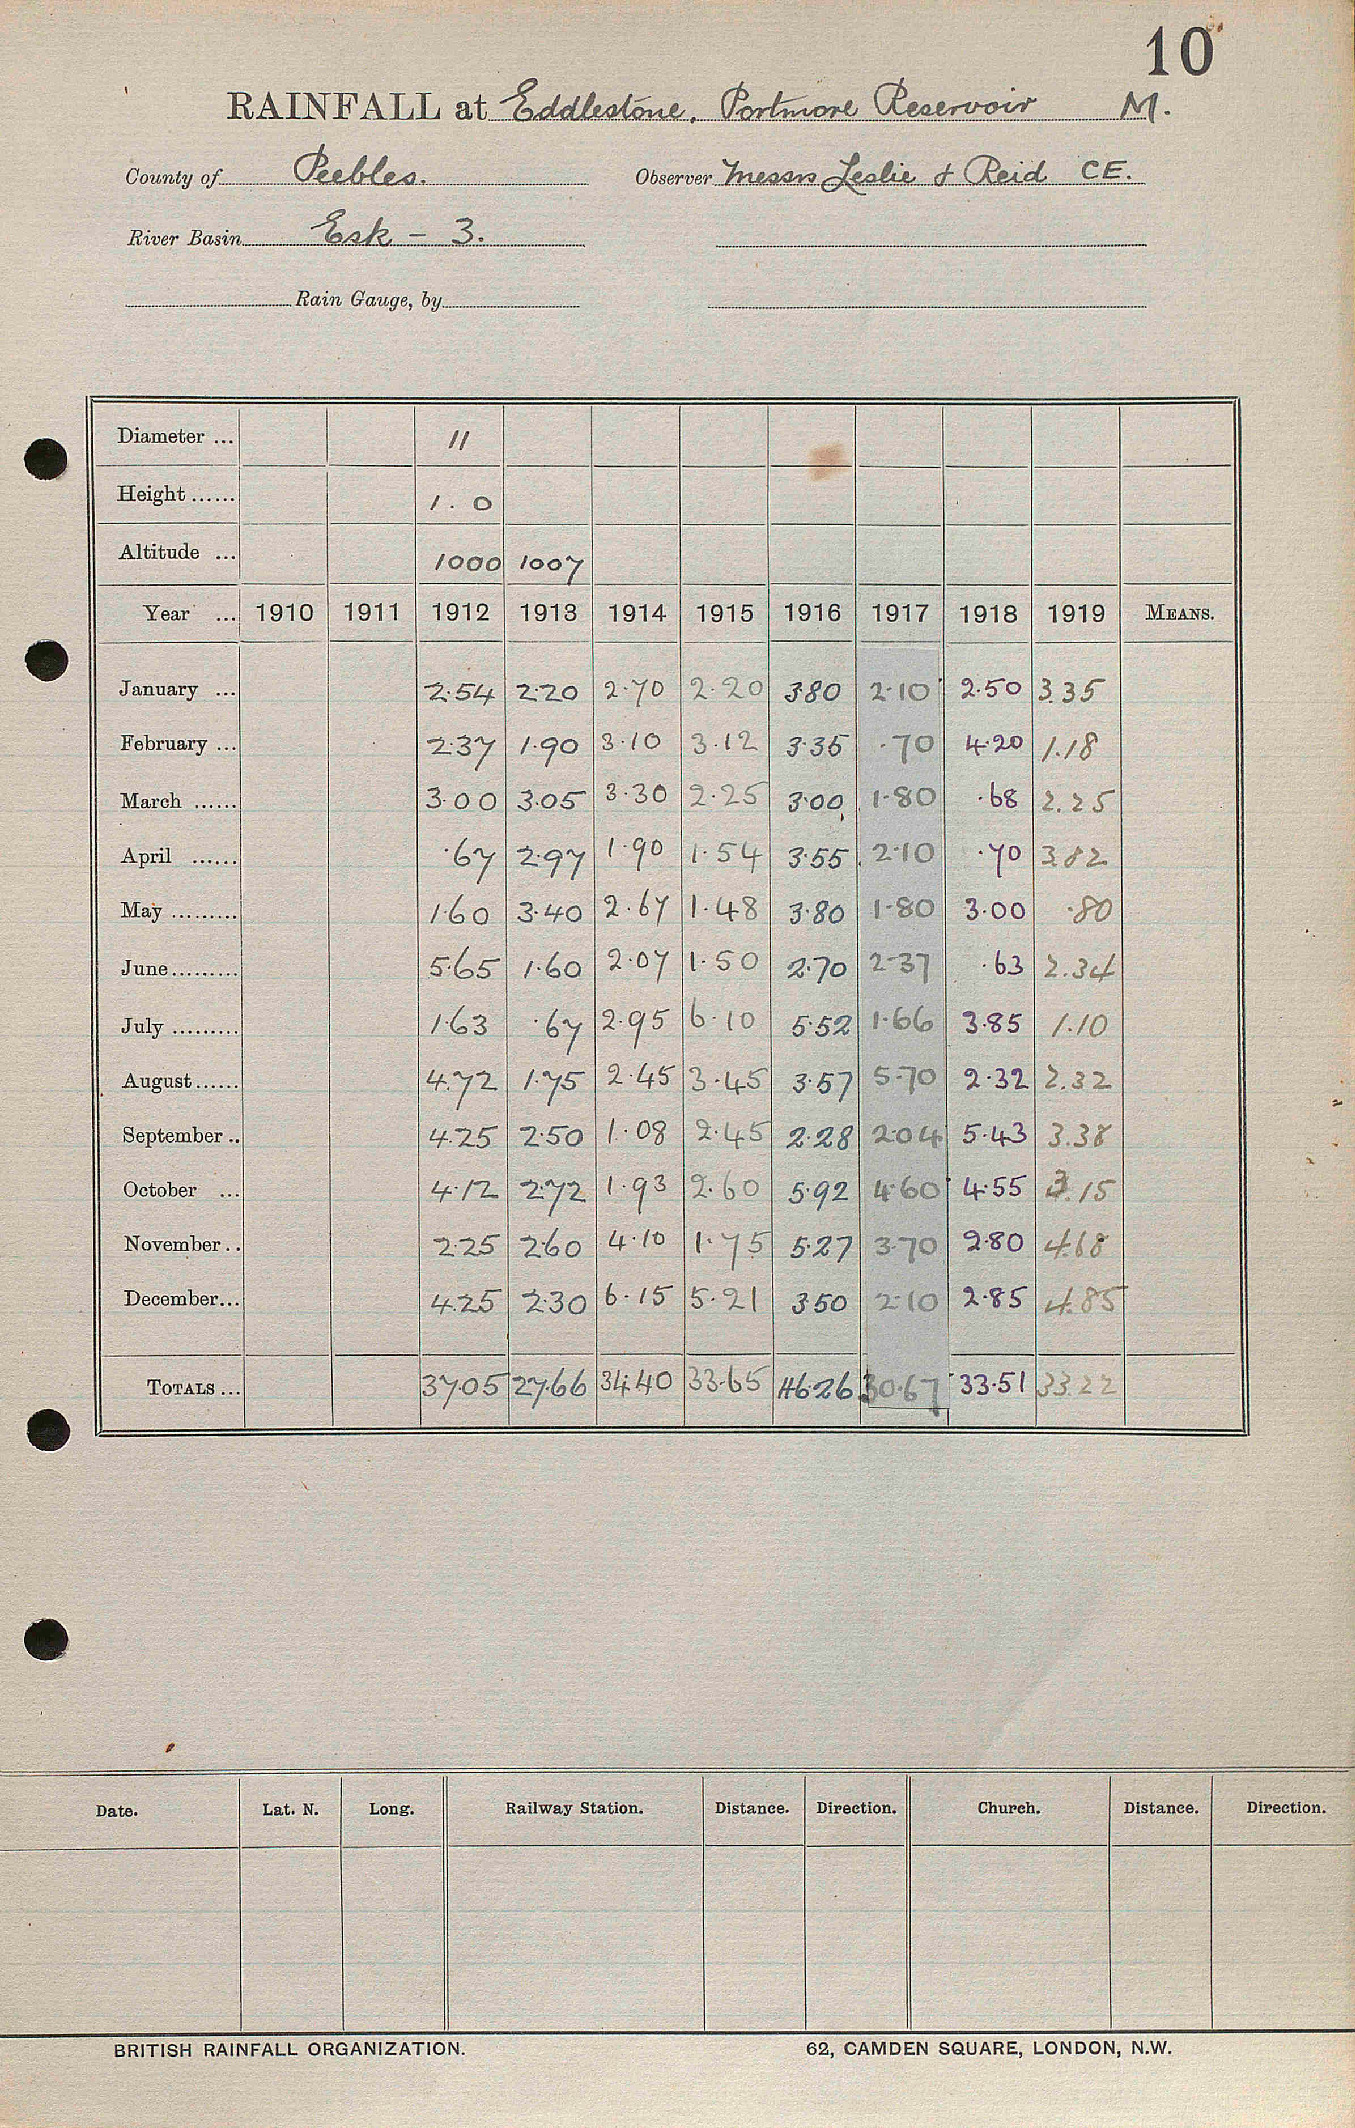 10
RAINFALL at Eddlestone, Portmore Reservoir M.
County of Peebles. Observer Messrs Leslie & Reid CE.
River Basin Esk - 3.
Rain Gauge, by
Diameter ... 11
Height ...... 1.0
Altitude ... 1000 1007
Year ... 1910 1911 1912 1913 1914 1915 1916 1917 1918 1919 MEANS.
January ... 2.54 2.20 2.70 2.20 3.80 2.10 2.50 3.35
February ... 2.37 1.90 3.10 3.12 3.35 .70 4.20 1.18
March ...... 3.00 3.05 3.30 2.25 3.00 1.80 .68 2.25
April ...... .67 2.97 1.90 1.54 3.55 2.10 .70 3.82
May ......... 1.60 3.40 2.67 1.48 3.80 1.80 3.00 .80
June ......... 5.65 1.60 2.07 1.50 2.70 2.37 .63 2.34
July ......... 1.63 .67 2.95 6.10 5.52 1.66 3.85 1.10
August ...... 4.72 1.75 2.45 3.45 3.57 5.70 2.32 2.32
September .. 4.25 2.50 1.08 2.45 2.28 2.04 5.43 3.38
October ... 4.12 2.72 1.93 2.60 5.92 4.60 4.55 3.15
November .. 2.25 2.60 4.10 1.75 5.27 3.70 2.80 4.68
December ... 4.25 2.30 6.15 5.21 3.50 2.10 2.85 4.85
TOTALS ... 37.05 27.66 34.40 33.65 46.26 30.67 33.51 33.22
Date. Lat. N. Long. Railway Station. Distance. Direction. Church. Distance. Direction.
BRITISH RAINFALL ORGANIZATION. 62, CAMDEN SQUARE, LONDON, N.W.